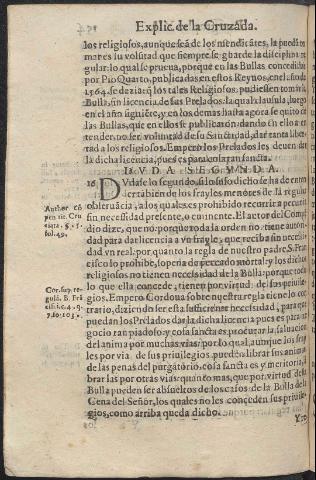 Explic. de la Cruzada.
los religiosos, aunque seã de los mendicãtes, la puedẽ to
mar es su volũtad que siempre se guarde la disciplina re
gular: lo qual se prueua, porque en las Bullas concedidas
por Pio Quarto, publicadas en estos Reynos, en el año de
1564. se dezia q̃ los tales Religiosos, pudiessen tomar la
Bulla, sin licencia de sus Prelados: la qual clausula, luego
en el año siguiẽte, y en los demas hasta agora se quito de
las Bullas, que en ellos se publicarõ: dando en ello a en
tender, no ser voluntad de su Sanctidad, dar tanta liber-
tad a los religiosos. Empero los Prelados les deuen dar
la dicha licencia, pues es para obra tan sancta.
DVDA SEGVNDA.
16 DVdase lo segundo, si lo susodicho se ha de en-
tẽder tãbien de los frayles menores de la regular
obseruancia, a los quales es prohibido recurrir a pecunia
sin necessidad presente, o eminente. El actor del Compẽ
dio dize, que no, porque toda la orden no tiene auctori-
dad para dar licencia a vn frayle, que reciba sin necessi-
dad vn real: por quanto la regla de nuestro padre S. Fran
cisco lo prohibe, so pena de peccado mortal: y los dichos
religiosos no tienen necessidad de la Bulla: porque todo
lo que ella concede, tienen por virtud de sus priuile-
gios. Empero Cordoua sobre nuestra regla tiene lo con
trario, diziendo ser esta sufficiente necessidad, para que
puedan los Prelados dar la dicha licencia pues es para ne
gocio tan piadoso: y cosa sancta es procurar la saluacion
del anima por muchas vias: por lo qual, aunque los fray
les por via de sus priuilegios puedẽ librar sus animas
de las penas del purgatorio, cosa sancta es y meritoria, li
brarlas por otras vias: quanto mas, que por virtud de la
Bulla pueden ser absueltos de los casos de la Bulla de la
Cena del Señor, los quales no les conceden sus priuile-
gios, como arriba queda dicho.
Author cõ
pen. tit. Cru
ciata. §. 5.
fol. 49.
Cor. sup. re-
gulã. B. Frã
cisci. c. 4. q.
7. fo. 103.